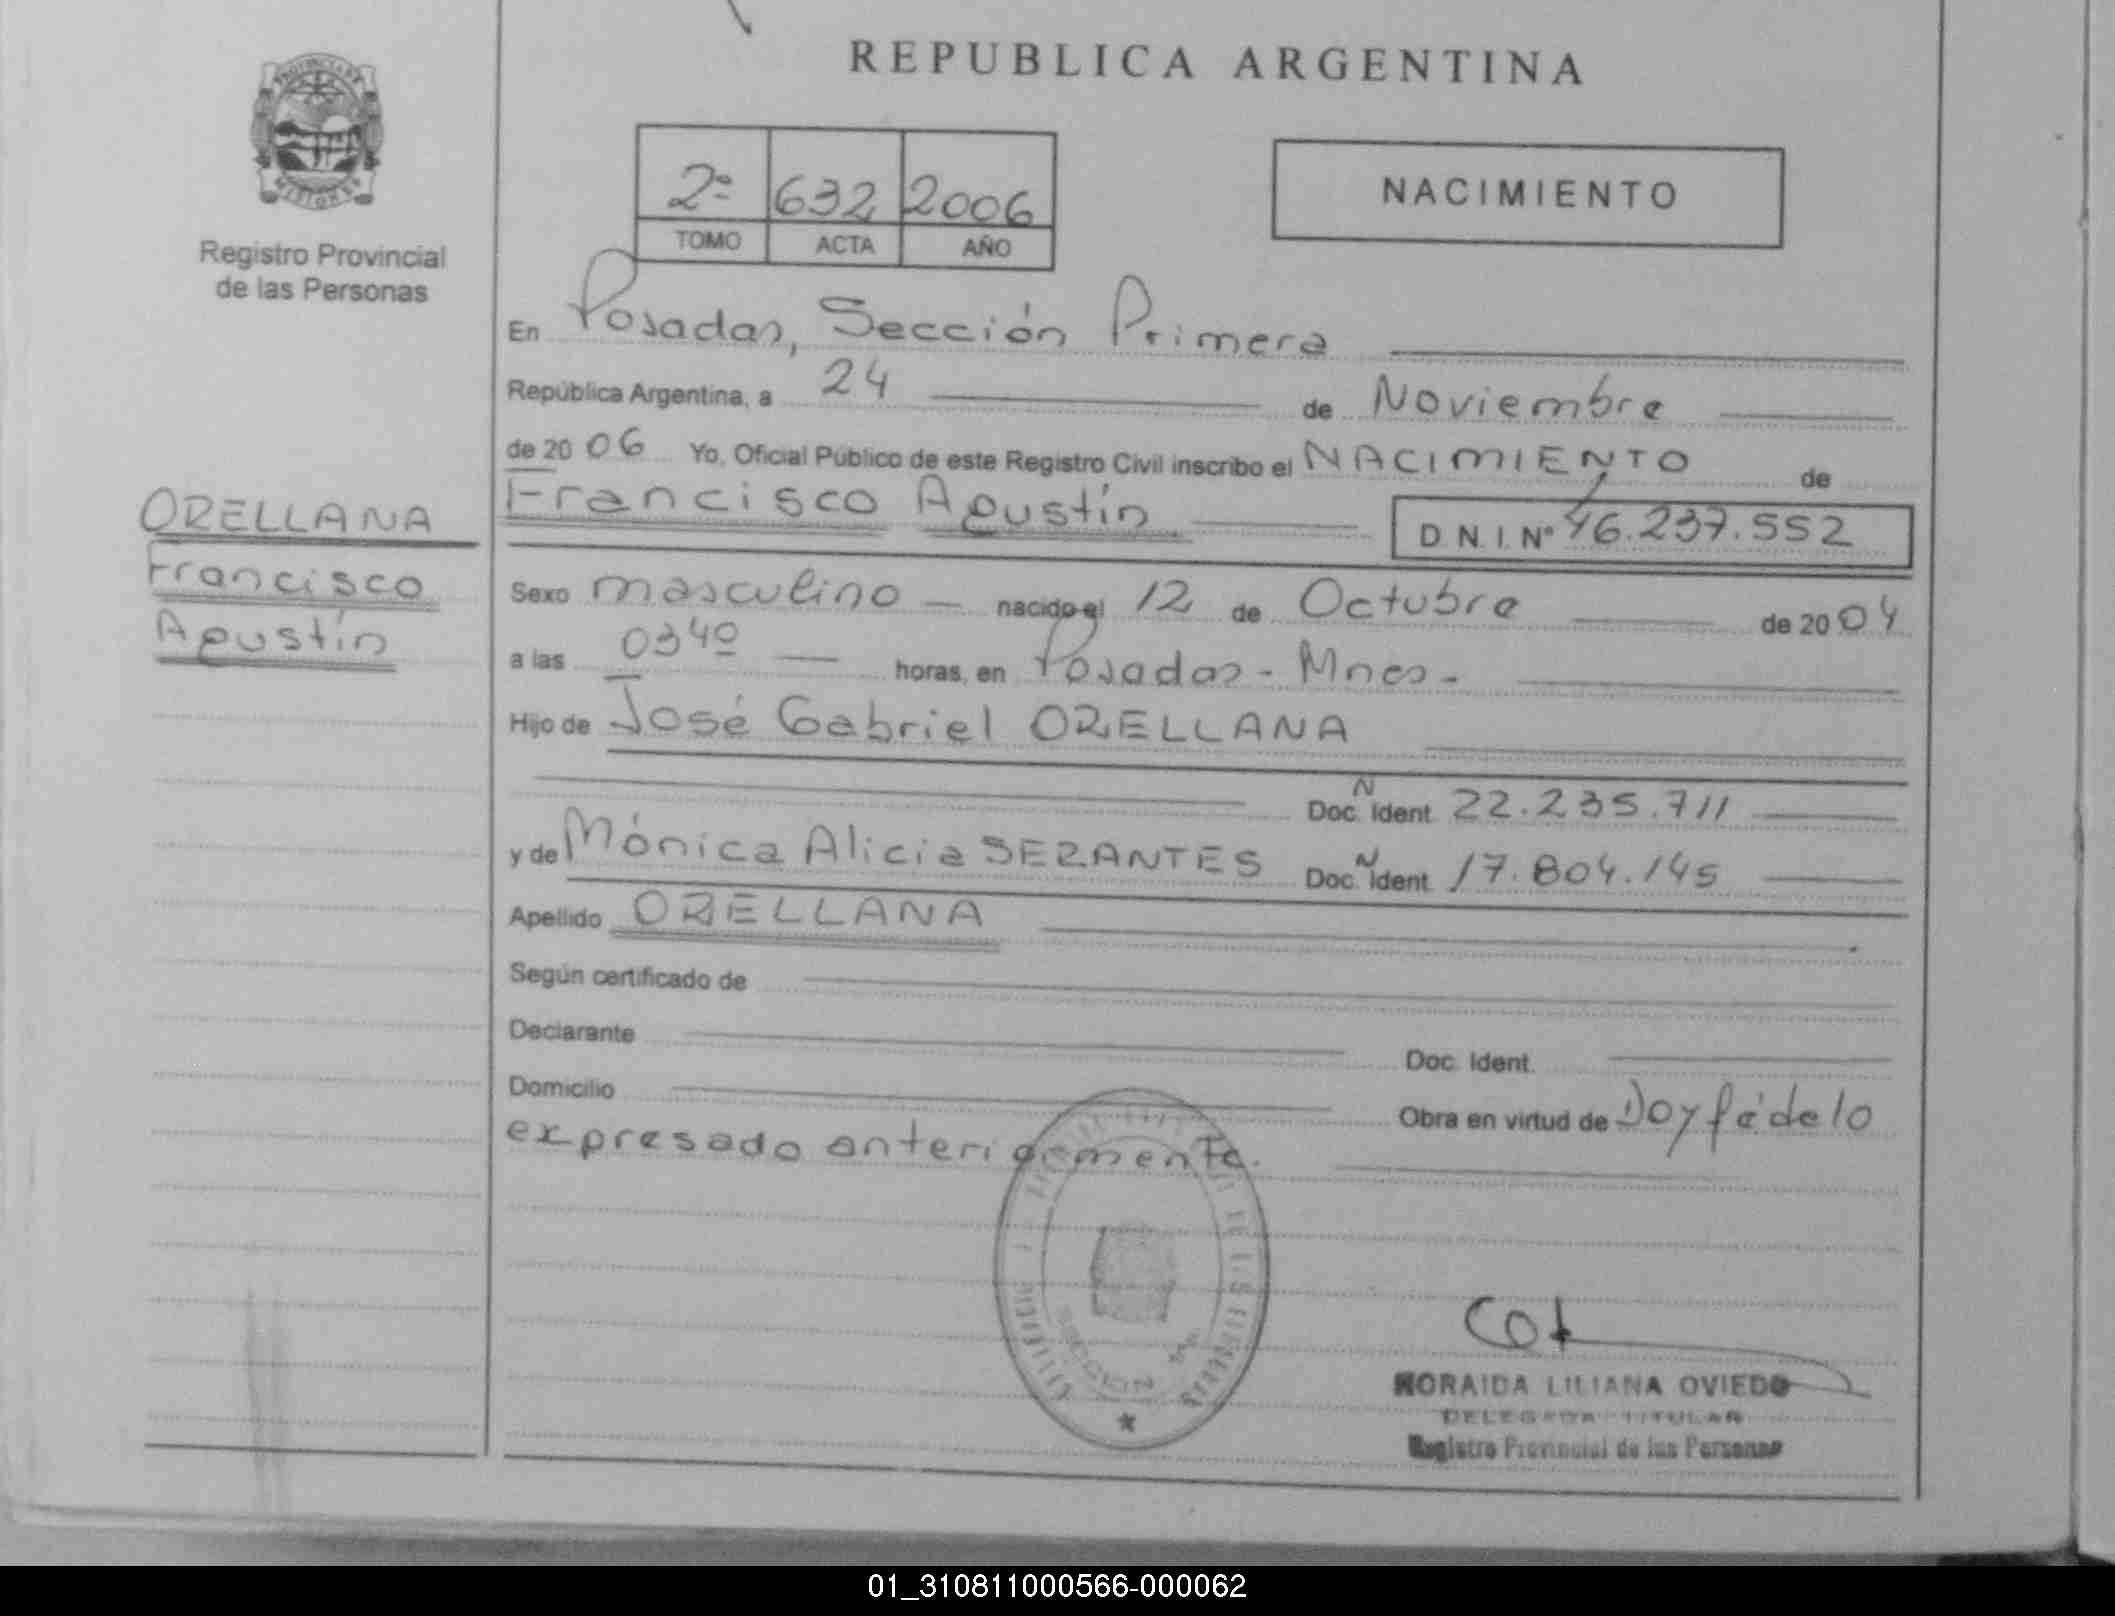 REPUBLICA ARGENTINA
PROVINCIA DE
MISIONES
Registro Provincial
de las Personas
2º 632 2006
TOMO ACTA AÑO
NACIMIENTO
En Posadas, Sección Primera
República Argentina, a 24 de Noviembre
de 2006 Yo, Oficial Público de este Registro Civil inscribo el NACIMIENTO de
ORELLANA
Francisco
Agustín
Francisco Agustín D.N.I. Nº 46.237.552
Sexo masculino nacido el 12 de Octubre de 2004
a las 0340 horas, en Posadas - Mnes -
Hijo de José Gabriel ORELLANA
Doc. Ident. N 22.235.711
y de Mónica Alicia SERANTES Doc. Ident. N 17.804.145
Apellido ORELLANA
Según certificado de
Declarante Doc. Ident.
Domicilio Obra en virtud de Doy fé de lo
expresado anteriormente.
SECCION 1ra
NORAIDA LILIANA OVIEDO
DELEGADA TITULAR
Registro Provincial de las Personas
01_310811000566-000062